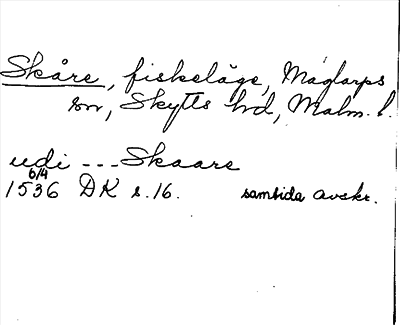 Skåre, fiskeläge, Maglarps
sn, Skytts hd, Malm. l.
udi --- Skaare
6/4
1536 DK s. 16. samtida avskr.